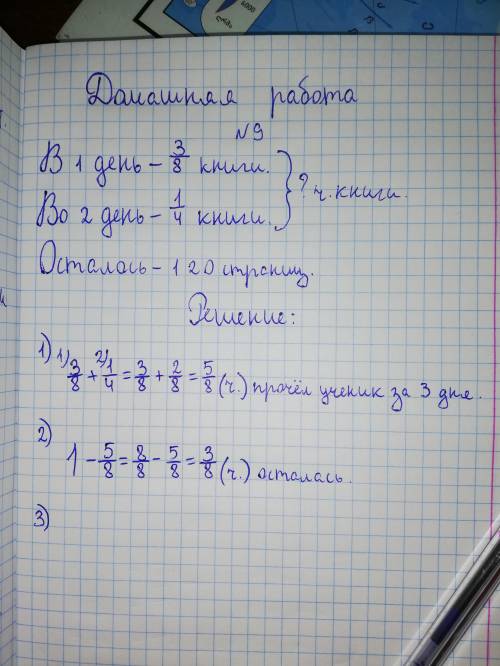 Домашная работа
№9
В 1 день – 3/8 книги.
Во 2 день – 1/4 книги. } ? ч. книги.
Осталось – 120 страниц.
Решение:
1) 1) 3/8 + 2) 1/4 = 3/8 + 2/8 = 5/8 (ч.) прочёл ученик за 3 дня.
2) 1 – 5/8 = 8/8 – 5/8 = 3/8 (ч.) осталась.
3)